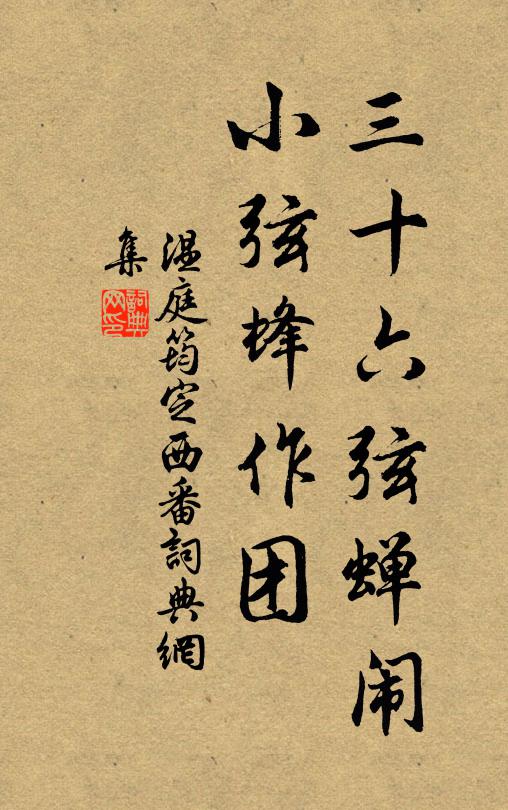 三十六弦蝉闹
小弦蜂作团
温庭筠定西番詞典網
集
詞典网印